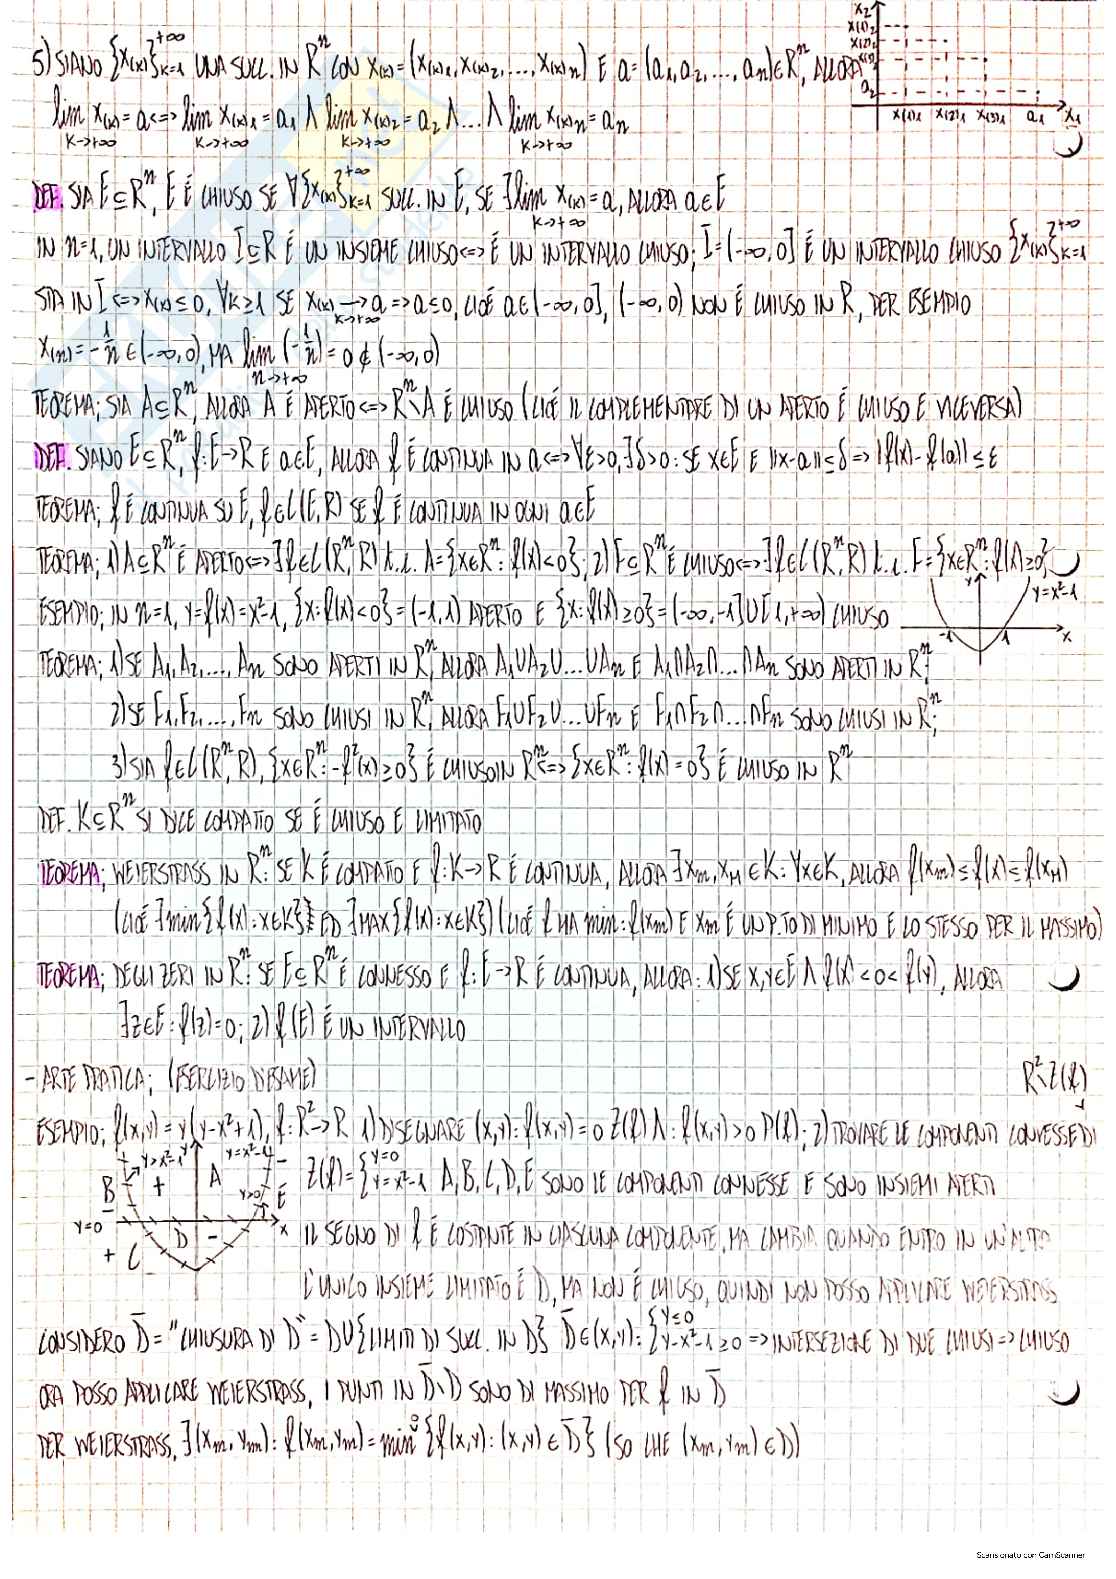 5) SIANO {x(k)}_{k=1}^{+∞} UNA SUCC. IN R^n CON x(k)=(x(k)1,x(k)2,...,x(k)n) E a=(a1,a2,...,an)∈R^n, ALLORA
lim_{k→+∞} x(k)=a <=> lim_{k→+∞} x(k)1=a1 ∧ lim_{k→+∞} x(k)2=a2 ∧...∧ lim_{k→+∞} x(k)n=an
x2
x(1)2
x(2)2
a2
x(1)1 x(2)1 x(3)1 a1 x1
DEF. SIA E⊆R^n, E É CHIUSO SE ∀{x(k)}_{k=1}^{+∞} SUCC. IN E, SE ∃lim_{k→+∞} x(k)=a, ALLORA a∈E
IN n=1, UN INTERVALLO I⊆R É UN INSIEME CHIUSO<=> É UN INTERVALLO CHIUSO; I=(-∞,0] É UN INTERVALLO CHIUSO {x(k)}_{k=1}^{+∞}
STA IN I<=>x(k)≤0, ∀k≥1 SE x(k)→_{k→+∞} a=>a≤0, CIOÉ a∈(-∞,0], (-∞,0) NON É CHIUSO IN R, PER ESEMPIO
x(n)=-1/n∈(-∞,0), MA lim_{n→+∞}(-1/n)=0∉(-∞,0)
TEOREMA; SIA A⊆R^n, ALLORA A É APERTO<=>R^n\A É CHIUSO (CIOÉ IL COMPLEMENTARE DI UN APERTO É CHIUSO E VICEVERSA)
DEF. SIANO E⊆R^n, f:E→R E a∈E, ALLORA f É CONTINUA IN a<=>∀ε>0,∃δ>0: SE x∈E E ||x-a||≤δ=>|f(x)-f(a)|≤ε
TEOREMA; f É CONTINUA SU E, f∈C(E,R) SE f É CONTINUA IN OGNI a∈E
TEOREMA; 1)A⊆R^n É APERTO<=>∃f∈C(R^n,R) t.c. A={x∈R^n: f(x)<0}; 2)F⊆R^n É CHIUSO<=>∃f∈C(R^n,R) t.c. F={x∈R^n: f(x)≥0}
ESEMPIO; IN n=1, y=f(x)=x²-1, {x:f(x)<0}=(-1,1) APERTO E {x:f(x)≥0}=(-∞,-1]∪[1,+∞) CHIUSO
y y=x²-1
-1 1 x
TEOREMA; 1)SE A1,A2,...,An SONO APERTI IN R^n, ALLORA A1∪A2∪...∪An E A1∩A2∩...∩An SONO APERTI IN R^n;
2)SE F1,F2,...,Fn SONO CHIUSI IN R^n, ALLORA F1∪F2∪...∪Fn E F1∩F2∩...∩Fn SONO CHIUSI IN R^n;
3)SIA f∈C(R^n,R), {x∈R^n:-f²(x)≥0} É CHIUSO IN R^n<=>{x∈R^n: f(x)=0} É CHIUSO IN R^n
DEF. K⊆R^n SI DICE COMPATTO SE É CHIUSO E LIMITATO
TEOREMA; WEIERSTRASS IN R^n: SE K É COMPATTO E f:K→R É CONTINUA, ALLORA ∃xm,xM∈K: ∀x∈K, ALLORA f(xm)≤f(x)≤f(xM)
(CIOÉ ∃min{f(x):x∈K} ED ∃MAX{f(x):x∈K}) (CIOÉ f HA min: f(xm) E xm É UN P.TO DI MINIMO E LO STESSO PER IL MASSIMO)
TEOREMA; DEGLI ZERI IN R^n: SE E⊆R^n É CONNESSO E f:E→R É CONTINUA, ALLORA: 1)SE x,y∈E ∧ f(x)<0<f(y), ALLORA
∃z∈E: f(z)=0; 2) f(E) É UN INTERVALLO
-ARTE PRATICA; (ESERCIZIO D'ESAME)
R²\Z(f)
ESEMPIO; f(x,y)=y(y-x²+1), f:R²→R 1)DISEGNARE (x,y):f(x,y)=0 Z(f) ∧: f(x,y)>0 P(f); 2)TROVARE LE COMPONENTI CONNESSE DI
y>x²-1 y y=x²-1
B + A y>0 E
y=0 D - x
+ C
Z(f)={y=0 y=x²-1 A,B,C,D,E SONO LE COMPONENTI CONNESSE E SONO INSIEMI APERTI
IL SEGNO DI f É COSTANTE IN CIASCUNA COMPONENTE, MA CAMBIA QUANDO ENTRO IN UN'ALTRA
L'UNICO INSIEME LIMITATO É D, MA NON É CHIUSO, QUINDI NON POSSO APPLICARE WEIERSTRASS
CONSIDERO D̄="CHIUSURA DI D"=D∪{LIMITI DI SUCC. IN D} D̄∈(x,y):{y≤0 y-x²-1≥0 =>INTERSEZIONE DI DUE CHIUSI=>CHIUSO
ORA POSSO APPLICARE WEIERSTRASS, I PUNTI IN D̄\D SONO DI MASSIMO PER f IN D̄
PER WEIERSTRASS, ∃(xm,ym): f(xm,ym)=min{f(x,y):(x,y)∈D̄} (SO CHE (xm,ym)∈D)
Scansionato con CamScanner